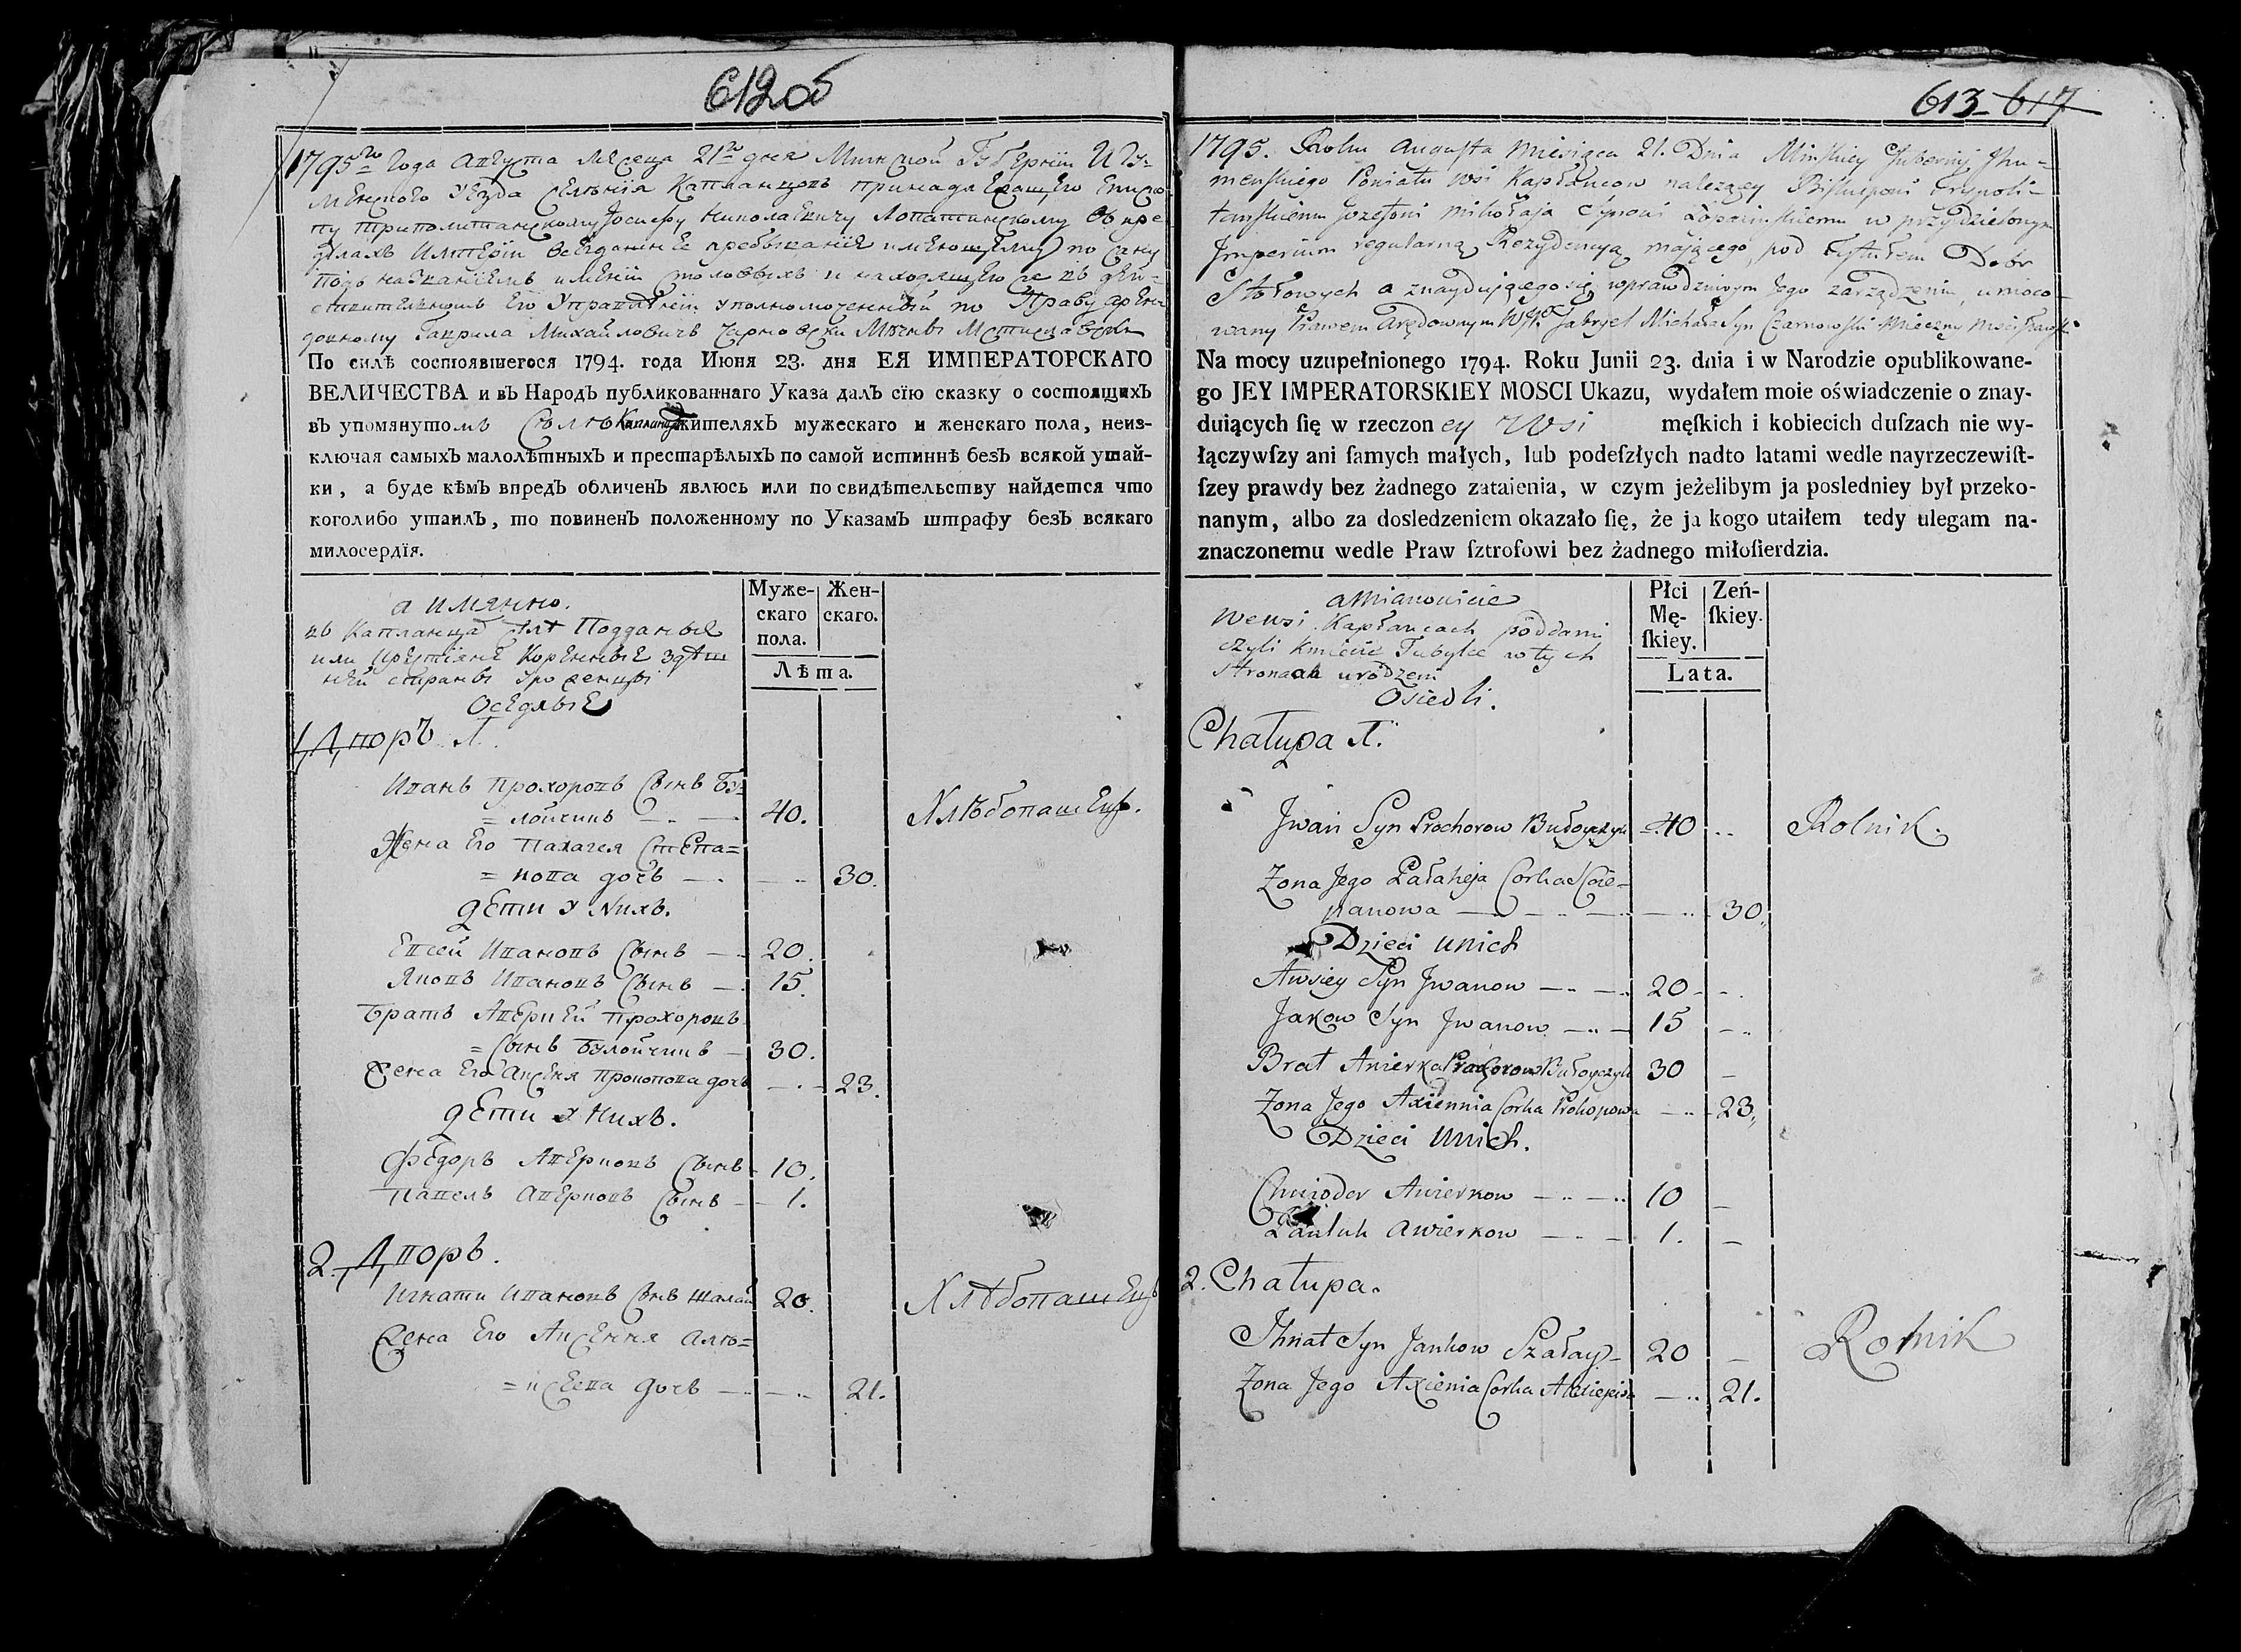 612 об
1795го Года Августа Месеца 21го дня Минской Губернiи Игу-
менского Уезда Селенiя Капланцовъ принадлежащего Еписко-
пу Триполитанскому Іосифу Николаевичу Лопатинскому въ пре-
делахъ Имперiи всегдашнее пребыванiе имеющему по сану
подъ названiемъ именiй столовыхъ и находящегося въ дей-
ствительномъ Его Управленiи уполномоченный по Праву арен-
довному Гаврила Михайловичъ Чарновски
По силѣ состоявшегося 1794. года Июня 23. дня ЕЯ ИМПЕРАТОРСКАГО
ВЕЛИЧЕСТВА и въ Народѣ публикованнаго Указа далъ сїю сказку о состоящихъ
въ упомянутомъ Селѣ Капланцахъ жителяхъ мужескаго и женскаго пола, неиз-
ключая самыхъ малолѣтныхъ и престарѣлыхъ по самой истиннѣ безъ всякой утай-
ки, а буде кѣмъ впредь обличенъ явлюсь или по свидѣтельству найдется что
коголибо утаилъ, то повиненъ положенному по Указамъ штрафу безъ всякаго
милосердїя.
Муже- Жен-
скаго скаго.
пола.
Лѣта.
а имянно.
въ Капланца Селѣ Подданые
или Крестiяне Коренные здѣш
ней стараны Уроженцы
Оседлые
1. Дворъ 1.
Иванъ Прохоровъ Сынъ Бу-
= лойчикъ 40. Хлѣбопашецъ.
Жена Его Палагея Степа=
= нова дочь 30.
дети У Нихъ.
Евсей Ивановъ Сынъ 20.
Яковъ Ивановъ Сынъ 15.
Братъ Аверкей Прохоровъ
= Сынъ Булойчикъ 30.
Жена Его Аксеня Прокопова дочь 23.
дети У Нихъ.
Федоръ Аверковъ Сынъ 10.
Павелъ Аверковъ Сынъ 1.
2. Дворъ.
Игнати Ивановъ Сынъ Шалай 20. Хлѣбопашецъ
Жена Его Аксення Алѣ=
= ксеева дочь 21.
613 617
1795. Roku Augusta Miesiąca 21. Dnia Minskiey Gubernij Jhu-
menskiego Powiatu Wsi Kapłancow należący Biskupowi Trypoli-
tanskiemu Jozefowi Mikołaja Synowi Łopacinskiemu w przydzielonym
Imperium regularną Rezydencyą mającego, pod tytułem Dobr
Stołowych a znaydującego się w prawdziwym Jego zarządzeniu, umoco-
wany Prawem Arędownym Gabryel Michała Syn Czarnowski
Na mocy uzupełnionego 1794. Roku Junii 23. dnia i w Narodzie opublikowane-
go JEY IMPERATORSKIEY MOSCI Ukazu, wydałem moie oświadczenie o znay-
duiących ſię w rzeczon ey Wsi męſkich i kobiecich duſzach nie wy-
łączywſzy ani ſamych małych, lub podeſzłych nadto latami wedle nayrzeczewiſt-
ſzey prawdy bez żadnego zataienia, w czym jeżelibym ja posledniey był przeko-
nanym, albo za dosledzeniem okazało ſię, że ja kogo utaiłem tedy ulegam na-
znaczonemu wedle Praw ſztrofowi bez żadnego miłoſierdzia.
Płci Zeń-
Mę- ſkiey.
ſkiey.
Lata.
a mianowicie
We wsi Kapłancach poddani
czyli Kmiecie Tubylce w tych
stronach urodzeni
Osiedli.
Chałupa 1.
Jwan Syn Prochorow Bułoyczyk 40 Rolnik.
Zona Jego Pałaheja Corka Scie-
panowa 30
Dzieci unich
Awsiey Syn Jwanow 20
Jakow Syn Jwanow 15
Brat Awierka Prochorow Bułoyczyk 30
Zona Jego Axiennia Corka Prokopowa 23
Dzieci Unich.
Chwiodor Awierkow 10
Pauluk Awierkow 1.
2. Chałupa.
Jhnat Syn Jankow Szałay 20 Rolnik
Zona Jego Axienia Corka 21.